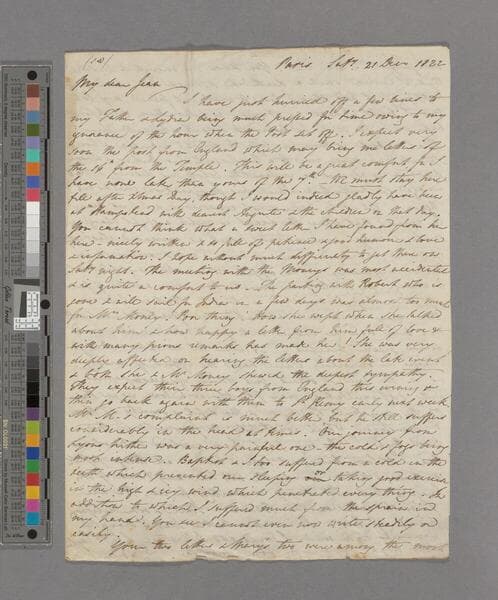 (10)
Paris Saty. 21 Decr 1822
My dear Jean
I have just hurried off a few lines to
my Father & Lydia being much pressed for time owing to my
ignorance of the hour when the Post set off. I expect very
soon the post from England which may bring me letters of
the 14th from the Temple. This will be a great comfort for I
have none later than yours of the 7th. We must stay here
till after Xmas Day, though I would indeed gladly have been
at Hampstead with dearest & the children on that day.
You cannot think what a sweet letter I have found from her
here - nicely written & so full of patience good humour & love
& information. I hope without much difficulty to get there on
Saty night. The meeting with the Moneys was most accidental
& is quite a comfort to us. The parting with Robert who is
gone & will sail for India in a few days was almost too much
for Mrs. Money. Poor thing! How she wept when she talked
about him & how happy a letter from him full of love &
with many pious remarks has made her! She was very
deeply affected on hearing the letters about the late event
& both she & Mr. Money shewed the deepest sympathy.
They expect their three boys from England this evening &
then go back again with them to St. early next week
Mr. M's complaint is much better but he still suffers
considerably in the head at times. Our journey from
Lyons hither was a very painful one - the cold & fogs being
most intense. Baptist & I too suffered from a cold in the
teeth which prevented our sleeping or taking good exercise
in the high & icy wind which penetrated every thing. In
addition to which I suffered much from the sprain in
my hand. You see I cannot even now write steadily or
easily.
Your two letters & Mary's two were among the most